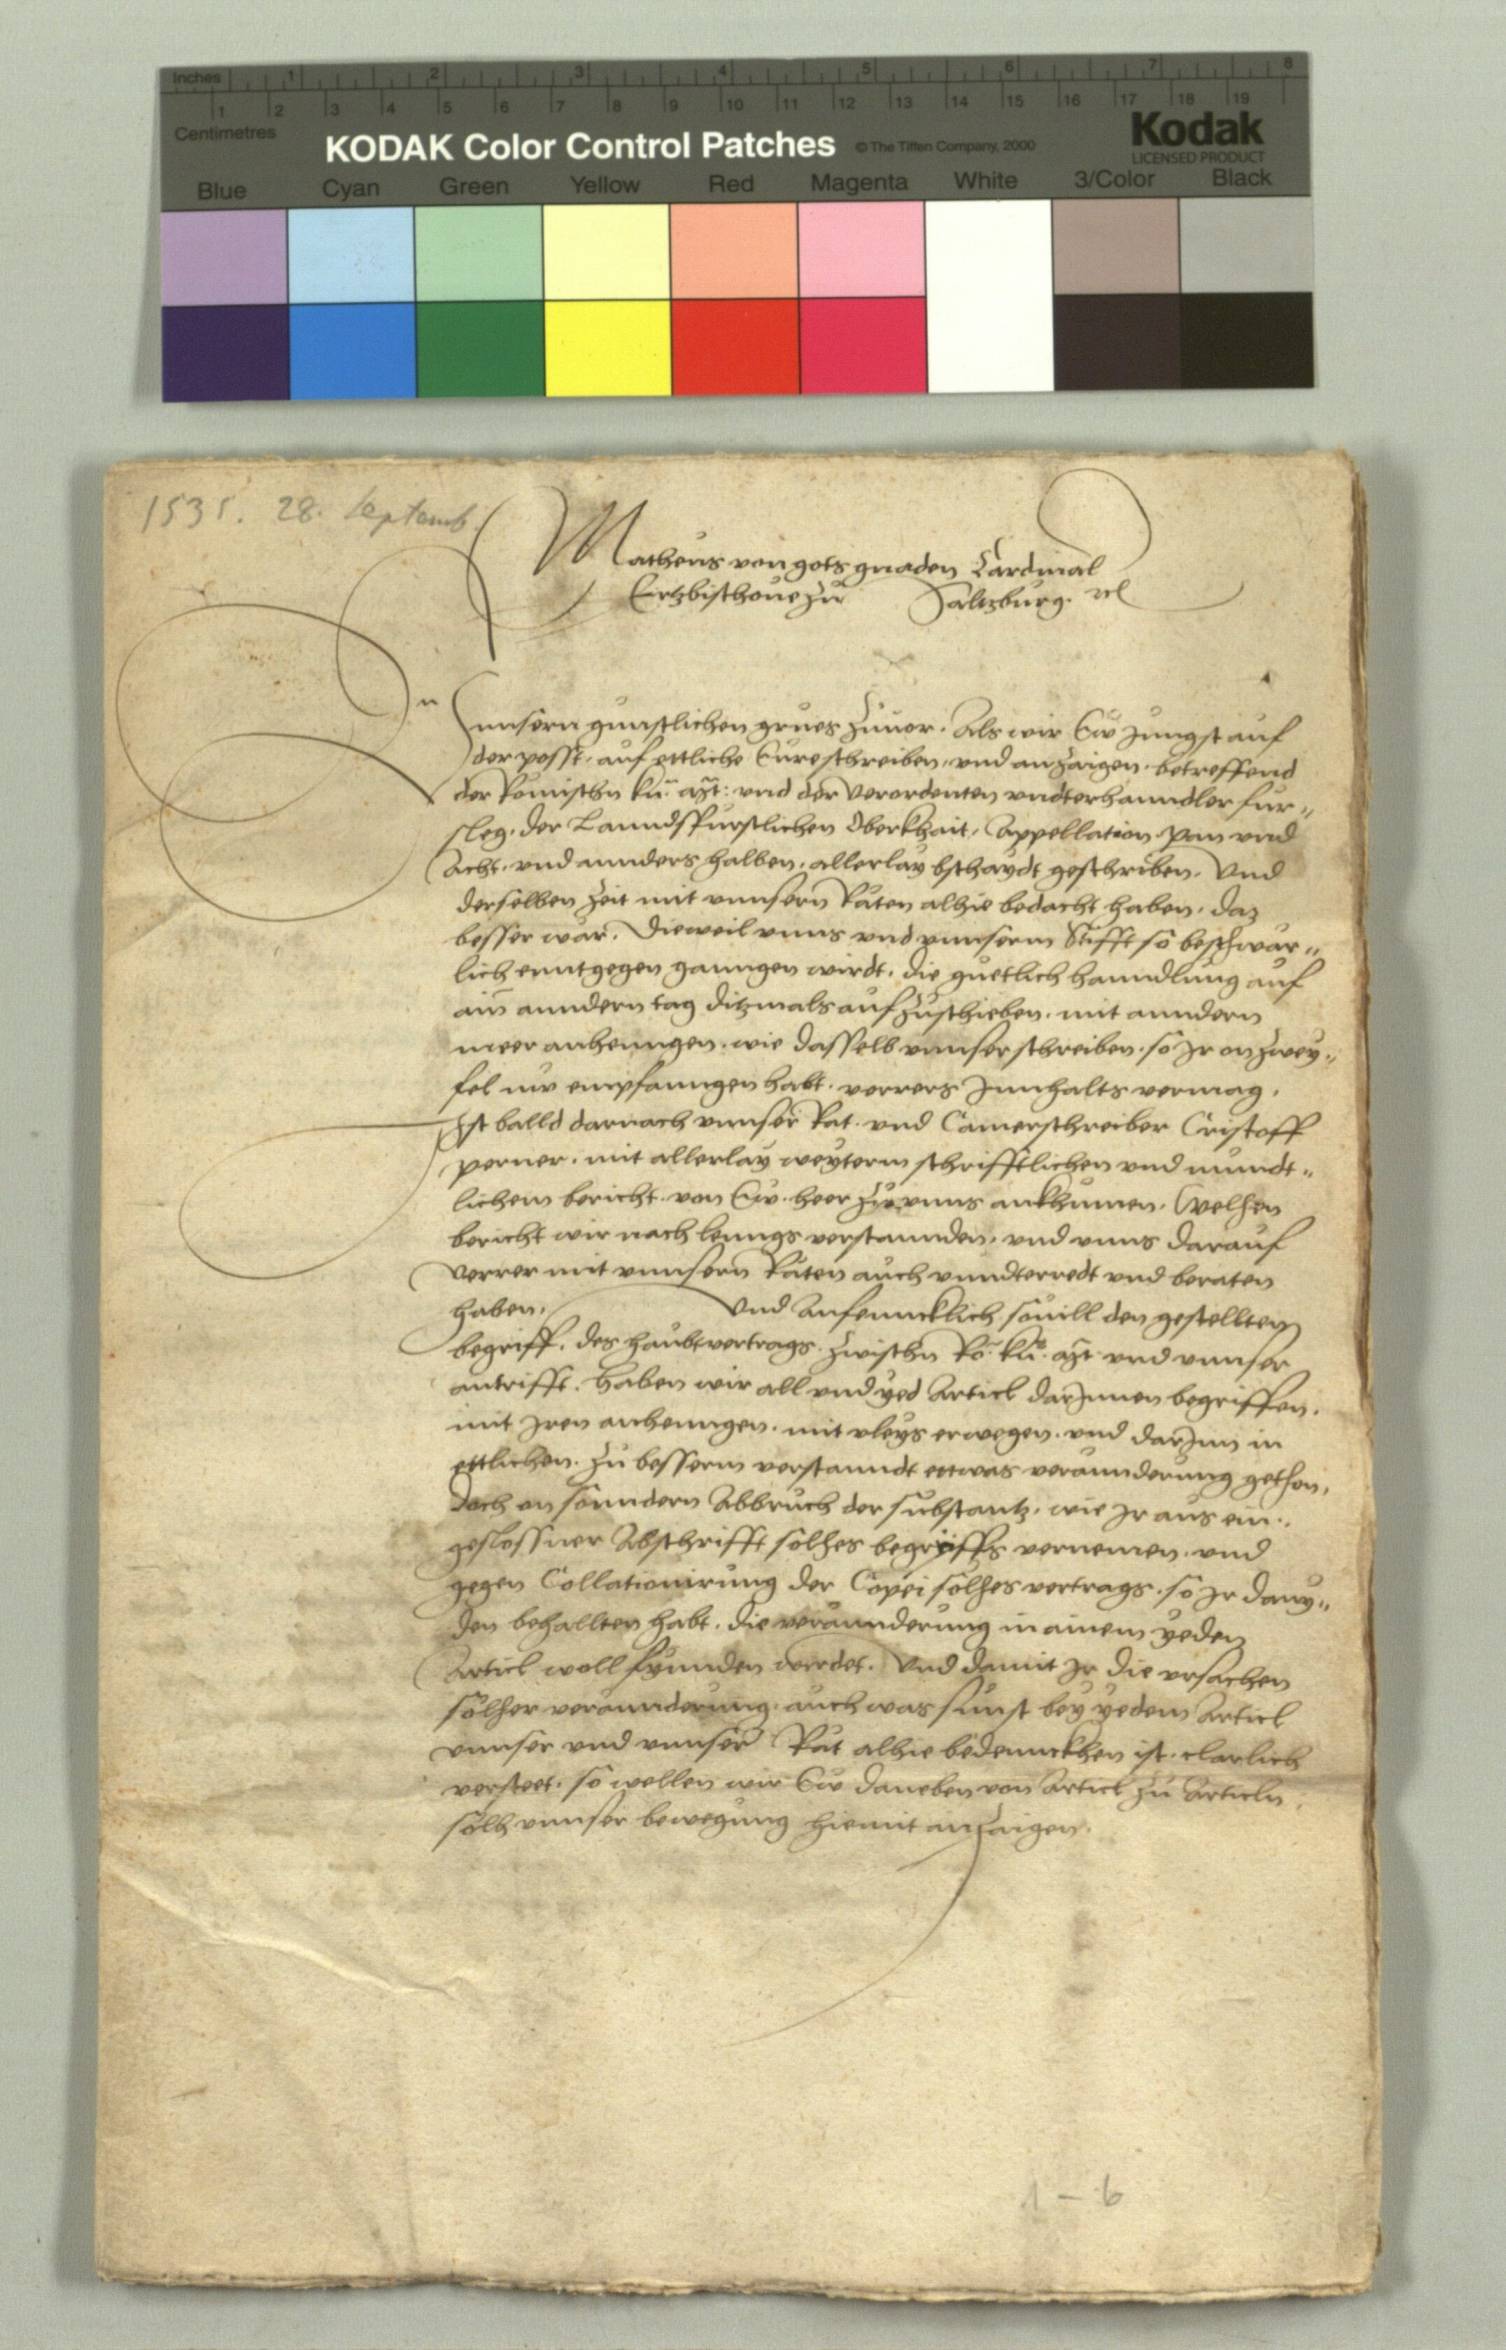 Inches 1 2 3 4 5 6 7 8
1 2 3 4 5 6 7 8 9 10 11 12 13 14 15 16 17 18 19
Centimetres
KODAK Color Control Patches © The Tiffen Company, 2000 Kodak
LICENSED PRODUCT
Blue Cyan Green Yellow Red Magenta White 3/Color Black
1535. 28. Septemb
Matheus von gots gnaden Cardinal
Ertzbischoue zu Saltzburg. ꝛc
Unnsern gunstlichen grues zuuor. Als wir Eur Jungst auf
der posst, auf ettliche Eure schreiben, vnd anzaigen, betreffend
der Romischn ku. mt: vnd der verordenten vndterhanndler fur-
sleg, der Lanndsfurstlichen Oberkhait, Appellation, pan vnd
Acht, vnd annders halben, allerlay bschaydt geschriben, Vnd
derselben zeit mit vnnsern Räten alhie bedacht haben, daz
besser wär, Dieweil vnns vnd vnnserm Stifft so beschwär-
lich enntgegen ganngen wirdt, die guetlich hanndlung auf
ain anndern tag ditzmals aufzuschieben, mit anndern
meer anhenngen, wie dasselb vnnser schreiben, so Jr on zwey-
fel nw empfanngen habt, verrers Jnnhalts vermag,
Ist balld darnach vnnser Rat, vnd Camerschreiber Cristoff
perner, mit allerlay weyterm schrifftlichen vnd mundt-
lichem bericht, von Eur heer zu vnns ankhumen, Welhen
bericht wir nach lenngs verstannden, vnd vnns darauf
verrer mit vnnsern Räten auch vnndterredt vnd beraten
haben, Vnd Anfenncklich souill den gestellten
begriff, des haubtvertrags, zwischn Ro. ku. mt vnd vnnser
antrifft, Haben wir all vnd yed Articl darJnnen begriffen,
mit Jren anhenngen, mit vleys erwegen, vnd darJnn in
ettlichen, zu besserm verstanndt ettwas veraünderung gethon,
doch on sonndern Abbruch der substantz, wie Jr aus ein-
geslossner Abschrifft solhes begriffs vernemen, vnd
gegen Collationirung der Copei solhes vertrags, so Jr
den behallten habt, die veraünderung in ainem yeden
Articl woll fynnden werdet. Vnd damit Jr die vrsachen
solher veraünderung, auch was sunst bey yedem Articl
vnnser vnd vnnser Rät alhie bedennckhen ist, clarlich
versteet, so wellen wir Eur daneben von Articl zu Articln
solh vnnser bewegung hiemit anzaigen.
1 - 6